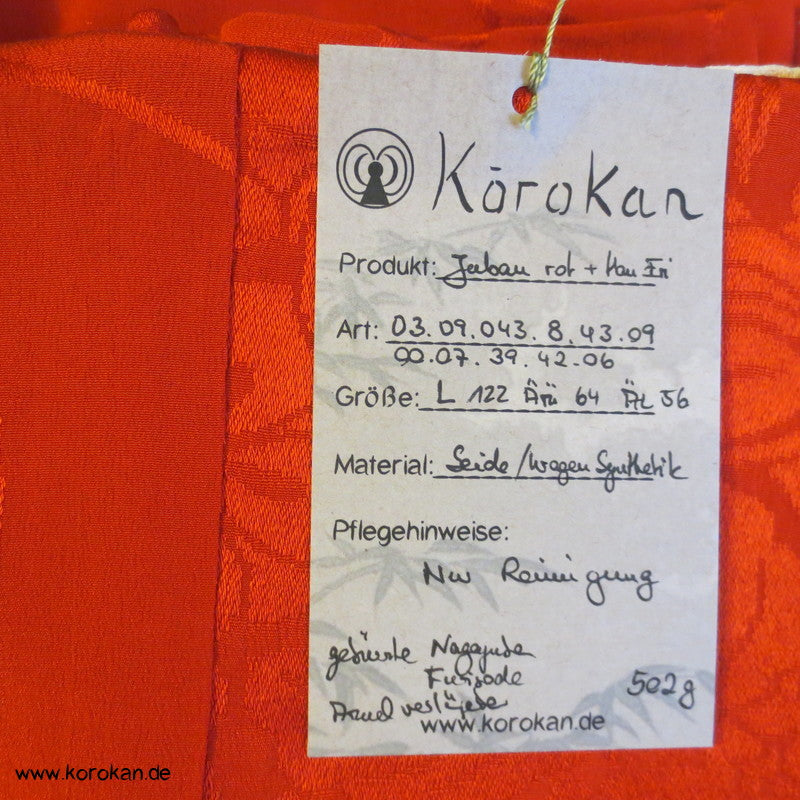 Kōrokan
Produkt: Juban rot + Han Eri
Art: 03.09.043.8.43.09
90.07.39.42.06
Größe: L 122 Ärü 64 ÄL 56
Material: Seide / Kragen Synthetik
Pflegehinweise:
Nur Reinigung
gekürzte
Furisode
502g
www.korokan.de
www.korokan.de